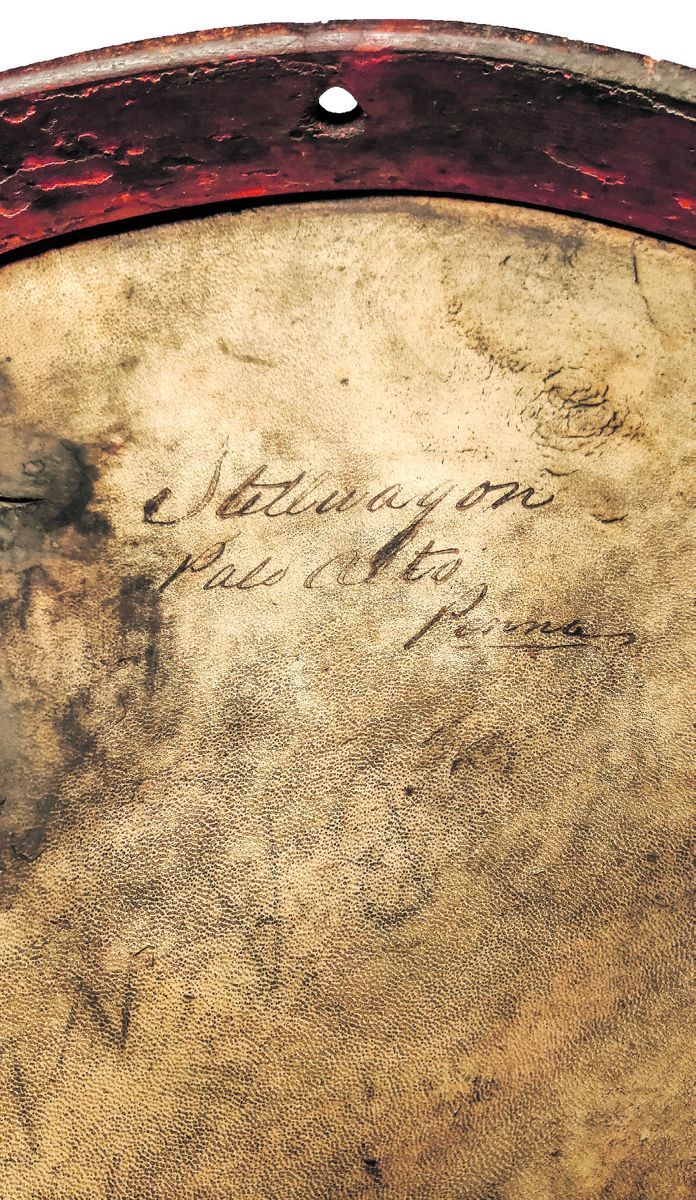 Stellwagon
Palo Alto
Penna